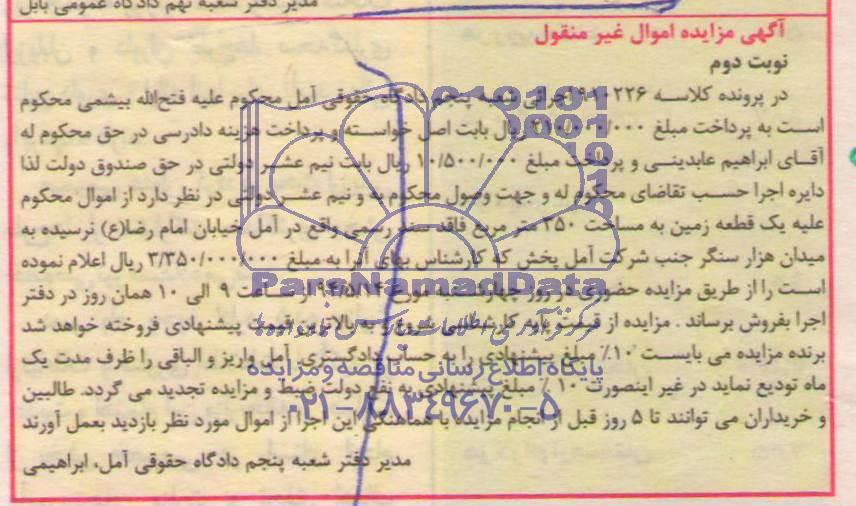 مدیر دفتر شعبه نهم دادگاه عمومی بابل
آگهی مزایده اموال غیر منقول
نوبت دوم
در پرونده کلاسه ۹۱۰۲۲۶ اجرائی شعبه پنجم دادگاه حقوقی آمل محکوم علیه فتح‌الله بیشمی محکوم
است به پرداخت مبلغ ۲۱۰/۰۰۰/۰۰۰ ریال بابت اصل خواسته و پرداخت هزینه دادرسی در حق محکوم له
آقای ابراهیم عابدینی و پرداخت مبلغ ۱۰/۵۰۰/۰۰۰ ریال بابت نیم عشر دولتی در حق صندوق دولت لذا
دایره اجرا حسب تقاضای محکوم له و جهت وصول محکوم به و نیم عشر دولتی در نظر دارد از اموال محکوم
علیه یک قطعه زمین به مساحت ۲۵۰ متر مربع فاقد سند رسمی واقع در آمل خیابان امام رضا(ع) نرسیده به
میدان هزار سنگر جنب شرکت آمل پخش که کارشناس بهای آنرا به مبلغ ۳/۳۵۰/۰۰۰/۰۰۰ ریال اعلام نموده
است را از طریق مزایده حضوری در روز چهارشنبه مورخ ۹۴/۵/۱۴ از ساعت ۹ الی ۱۰ همان روز در دفتر
اجرا بفروش برساند . مزایده از قیمت پایه کارشناسی شروع و به بالاترین قیمت پیشنهادی فروخته خواهد شد
برنده مزایده می بایست ۱۰٪ مبلغ پیشنهادی را به حساب دادگستری آمل واریز و الباقی را ظرف مدت یک
ماه تودیع نماید در غیر اینصورت ۱۰ ٪ مبلغ پیشنهادی به نفع دولت ضبط و مزایده تجدید می گردد. طالبین
و خریداران می توانند تا ۵ روز قبل از انجام مزایده با هماهنگی این اجرا از اموال مورد نظر بازدید بعمل آورند
مدیر دفتر شعبه پنجم دادگاه حقوقی آمل، ابراهیمی
ParsNamadData
پایگاه اطلاع رسانی مناقصه و مزایده
۰۲۱-۸۸۳۴۹۶۷۰-۵